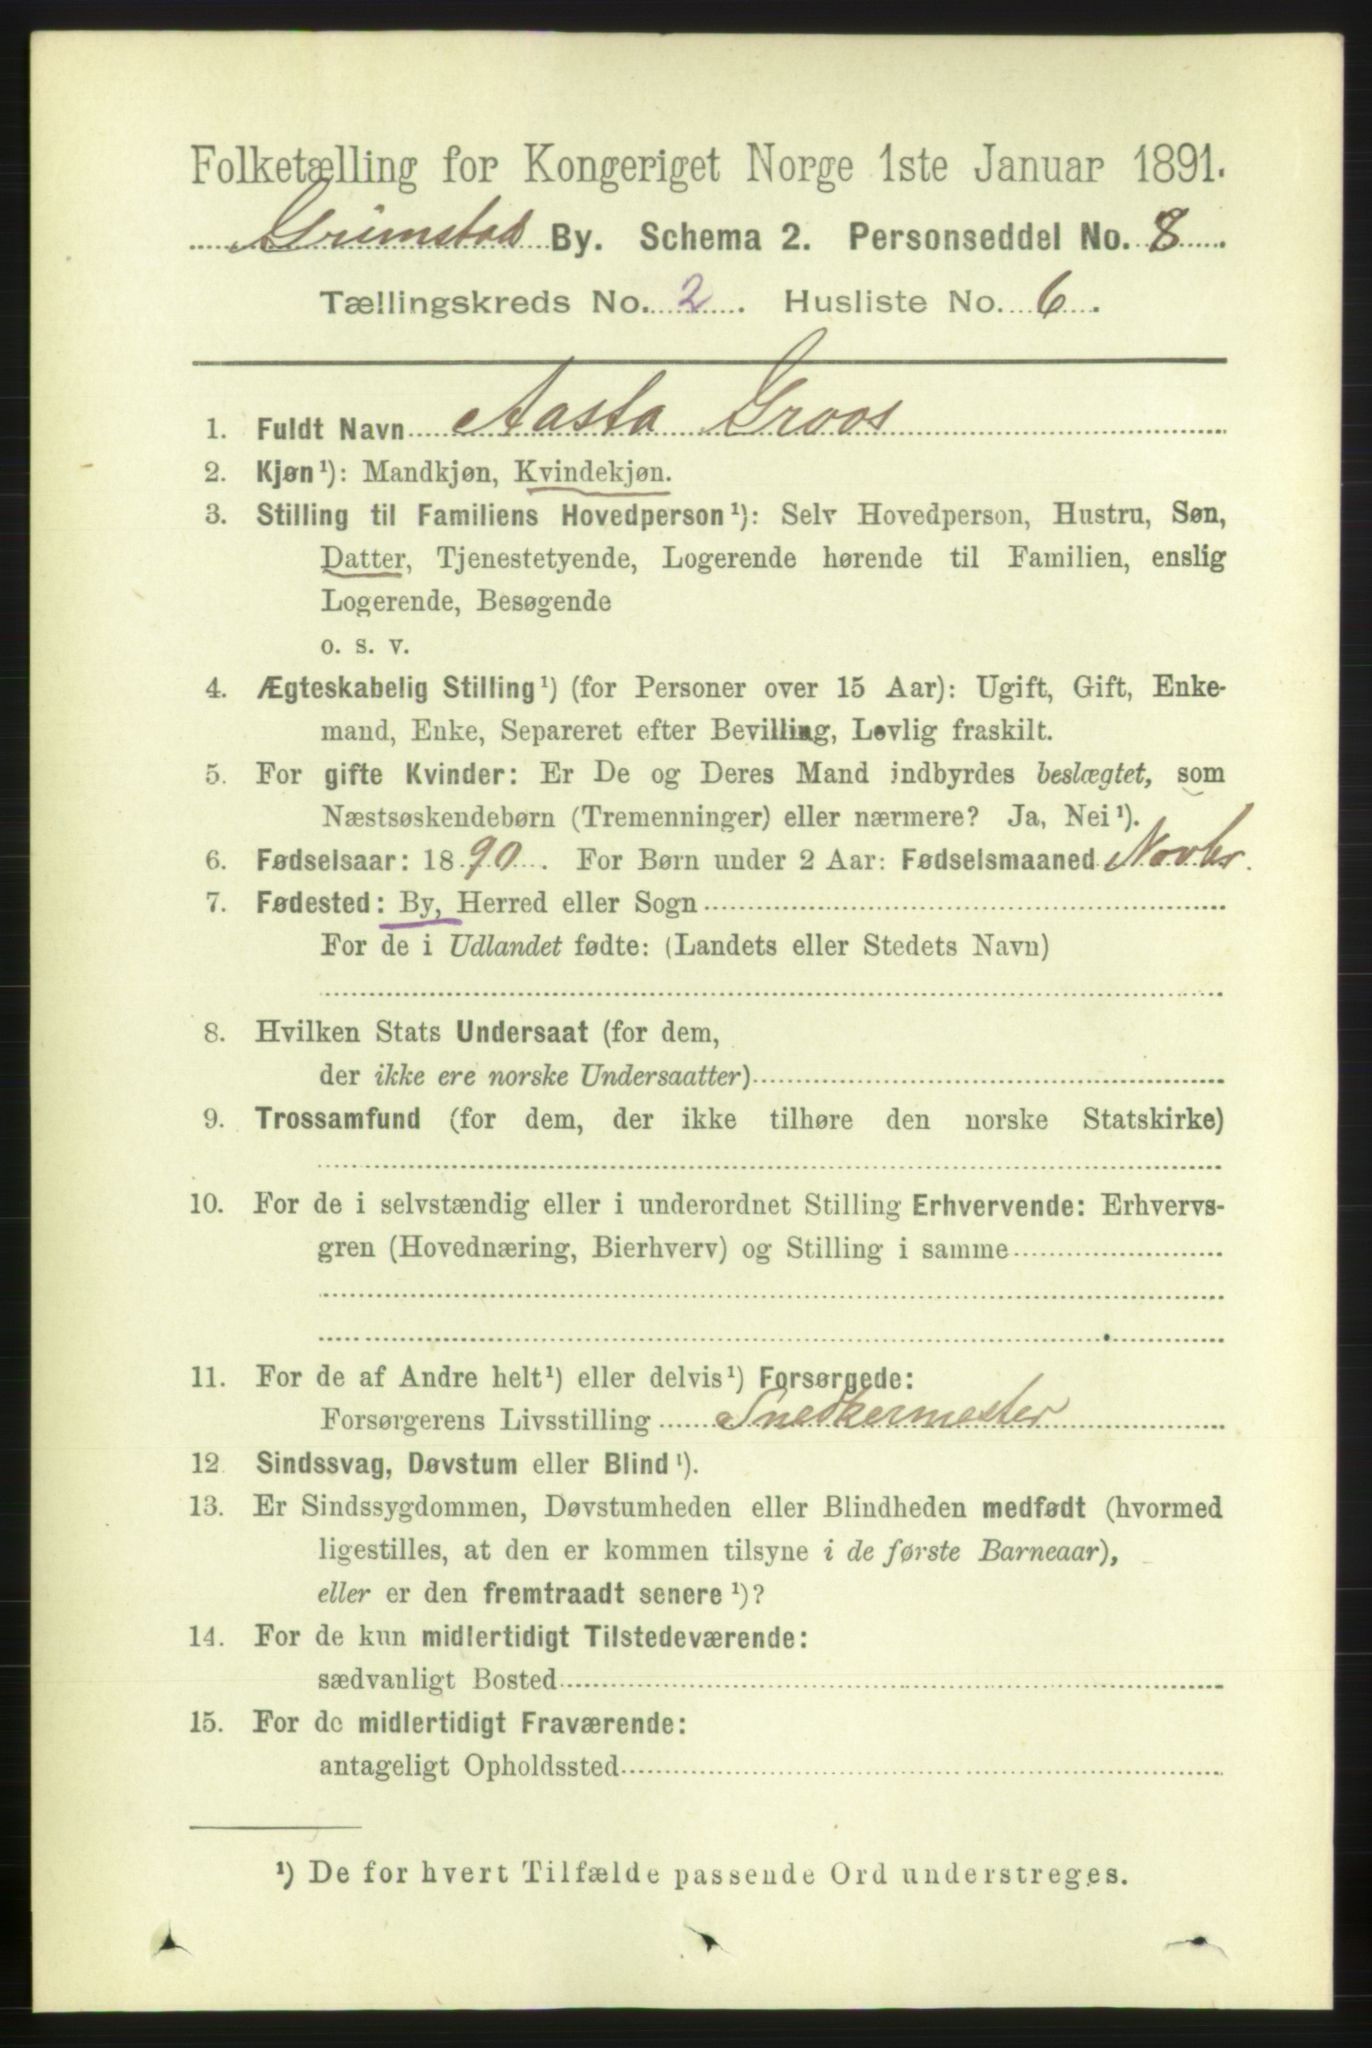 Folketælling for Kongeriget Norge 1ste Januar 1891.
Grimstad By. Schema 2. Personseddel No. 8.
Tællingskreds No. 2. Husliste No. 6.
1. Fuldt Navn Aasta Groos
2. Kjøn¹): Mandkjøn, Kvindekjøn.
3. Stilling til Familiens Hovedperson¹): Selv Hovedperson, Hustru, Søn,
Datter, Tjenestetyende, Logerende hørende til Familien, enslig
Logerende, Besøgende
o. s. v.
4. Ægteskabelig Stilling¹) (for Personer over 15 Aar): Ugift, Gift, Enke-
mand, Enke, Separeret efter Bevilling, Lovlig fraskilt.
5. For gifte Kvinder: Er De og Deres Mand indbyrdes beslægtet, som
Næstsøskendebørn (Tremenninger) eller nærmere? Ja, Nei¹).
6. Fødselsaar: 1890. For Børn under 2 Aar: Fødselsmaaned Novbr.
7. Fødested: By, Herred eller Sogn
For de i Udlandet fødte: (Landets eller Stedets Navn)
8. Hvilken Stats Undersaat (for dem,
der ikke ere norske Undersaatter)
9. Trossamfund (for dem, der ikke tilhøre den norske Statskirke)
10. For de i selvstændig eller i underordnet Stilling Erhvervende: Erhvervs-
gren (Hovednæring, Bierhverv) og Stilling i samme
11. For de af Andre helt¹) eller delvis¹) Forsørgede:
Forsørgerens Livsstilling Snedkermester
12 Sindssvag, Døvstum eller Blind¹).
13. Er Sindssygdommen, Døvstumheden eller Blindheden medfødt (hvormed
ligestilles, at den er kommen tilsyne i de første Barneaar),
eller er den fremtraadt senere¹)?
14. For de kun midlertidigt Tilstedeværende:
sædvanligt Bosted
15. For de midlertidigt Fraværende:
antageligt Opholdssted
¹) De for hvert Tilfælde passende Ord understreges.